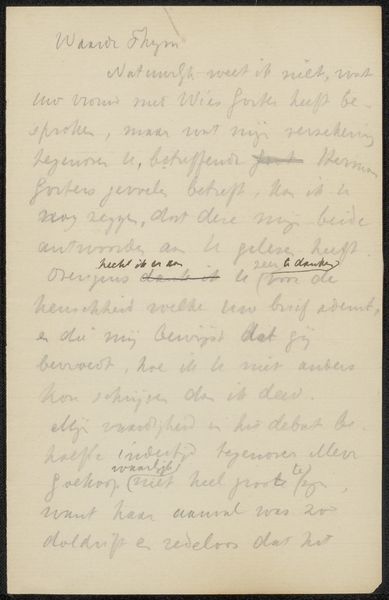 Waarde Thym
Natuurlijk weet ik niet, wat
uw vrouw met Wies Gorter heeft be-
sproken, maar wat mijn verzekering
tegenover U, betreffende Herman
Gorters gevoelen betreft, kan ik U
nog zeggen, dat deze mijn beide
antwoorden aan U gelezen heeft.
hecht ik er aan zeer te danken
Overigens dank ik U voor de
heuschheid welke uw brief ademt,
en die mij bewijst dat gij
bevroedt, hoe ik U niet anders
kon schrijven dan ik deed.
Mijn vaardigheid in het debat be-
hoefde indertijd tegenover Mevr
waarlijk te
Goekoop niet heel groot zijn,
want haar aanval was zoo
doldrift en redeloos dat het